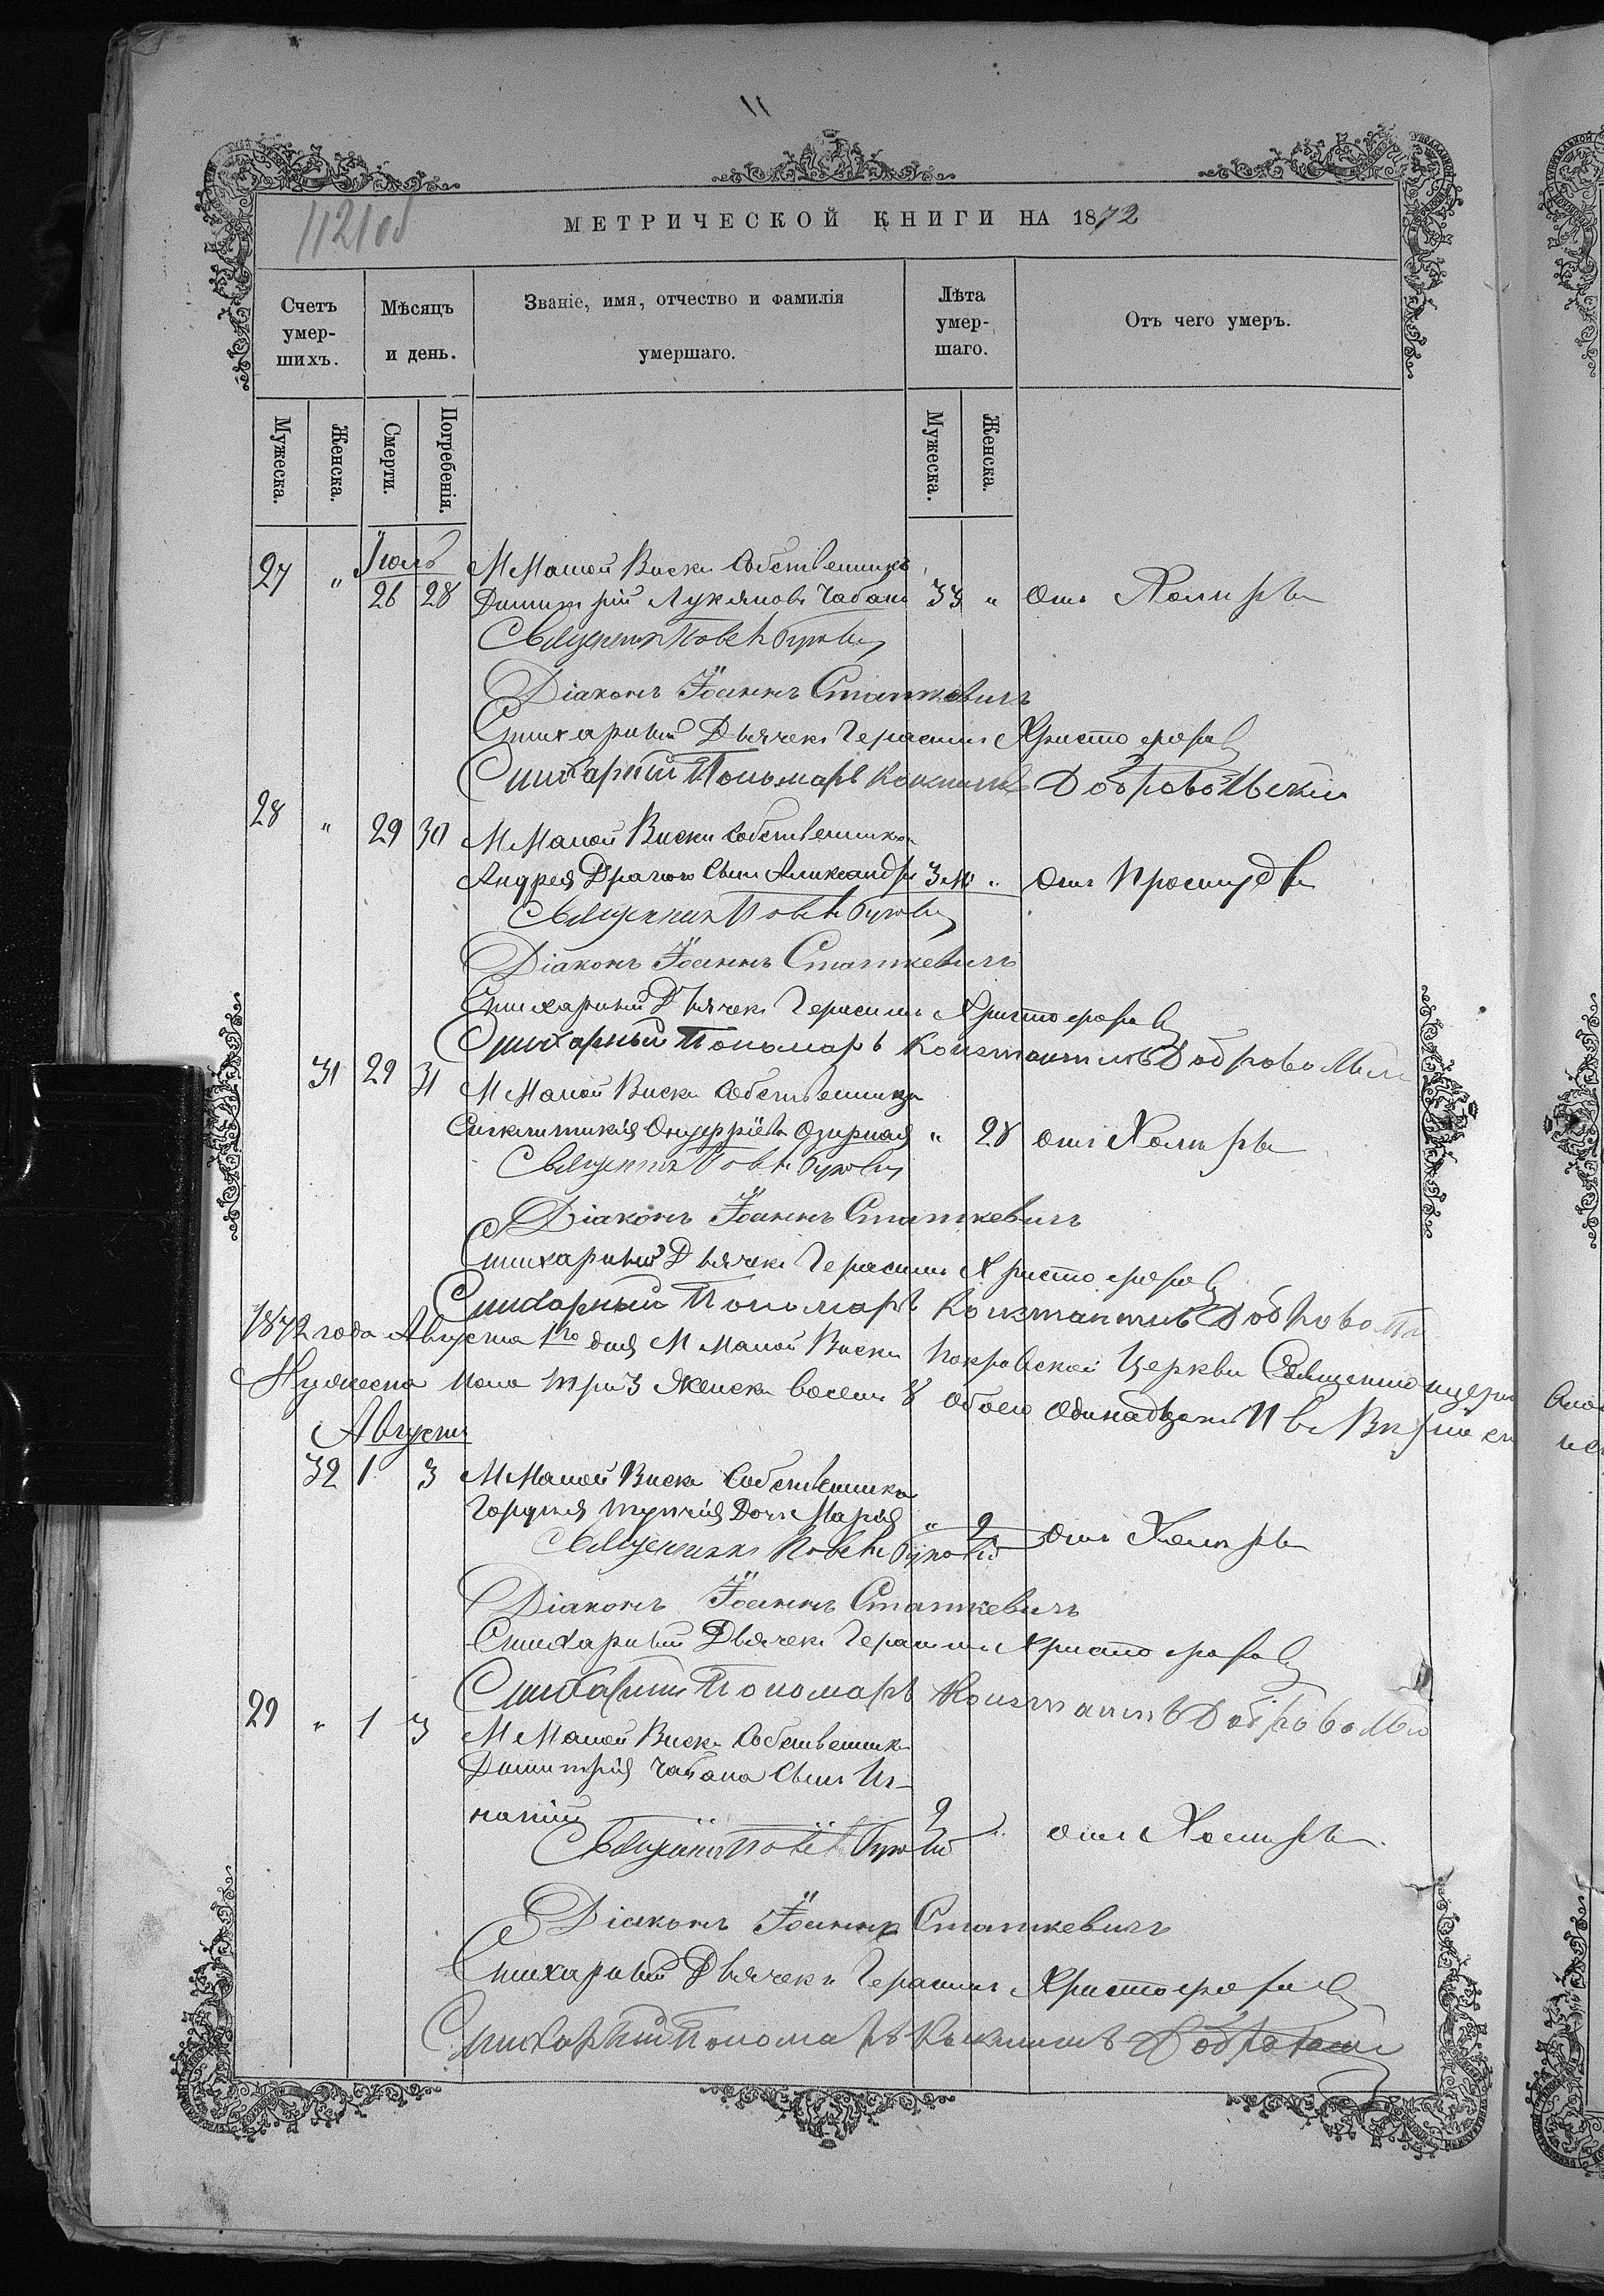 1121 об
МЕТРИЧЕСКОЙ КНИГИ НА 1872
Счетъ умер-шихъ.
Мѣсяцъ и день.
Званіе, имя, отчество и фамилія умершаго.
Лѣта умер-шаго.
Отъ чего умеръ.
Мужеска.
Женска.
Смерти.
Погребенія.
Мужеска.
Женска.
Іюль
27 " 26 28 М Малой Виски Собственникъ
Димитрій Лукяновъ Чабанъ 33 " отъ Холиры
Священникъ
Діаконъ Іоаннъ Статкевичъ
Стихарный Дьячекъ Герасимъ Христофоровъ
Стихарный Пономарь Константинъ Добровольскій
28 " 29 30 М Малой Виски Собственника
Андрея Драгого Сынъ Александръ 3 м " отъ Простуды
Священникъ
Діаконъ Іоаннъ Статкевичъ
Стихарный Дьячекъ Герасимъ Христофоровъ
Стихарный Пономарь Константинъ Добровольскій
31 29 31 М Малой Виски Собственница
Синклитикія Онуфріева Озирная " 28 отъ Холиры
Священникъ
Діаконъ Іоаннъ Статкевичъ
Стихарный Дьячекъ Герасимъ Христофоровъ
Стихарный Пономарь Константинъ
1872 года Августа 1го дня М Малой Виски Покровской Церкви
Мужеска пола три 3 Женска восемь 8 обоего одинадцать 11 въ
Августъ
32 1 3 М Малой Виски Собственника
Дочь Марія " 9 отъ Холиры
Священникъ
Діаконъ Іоаннъ Статкевичъ
Стихарный Дьячекъ Герасимъ Христофоровъ
Стихарный Пономарь Константинъ
29 " 1 3 М Малой Виски Собственника
Димитрія Чабана Сынъ Иг-
натій 9 " отъ Холиры
Священникъ
Діаконъ Іоаннъ Статкевичъ
Стихарный Дьячекъ Герасимъ Христофоровъ
Стихарный Пономарь Константинъ